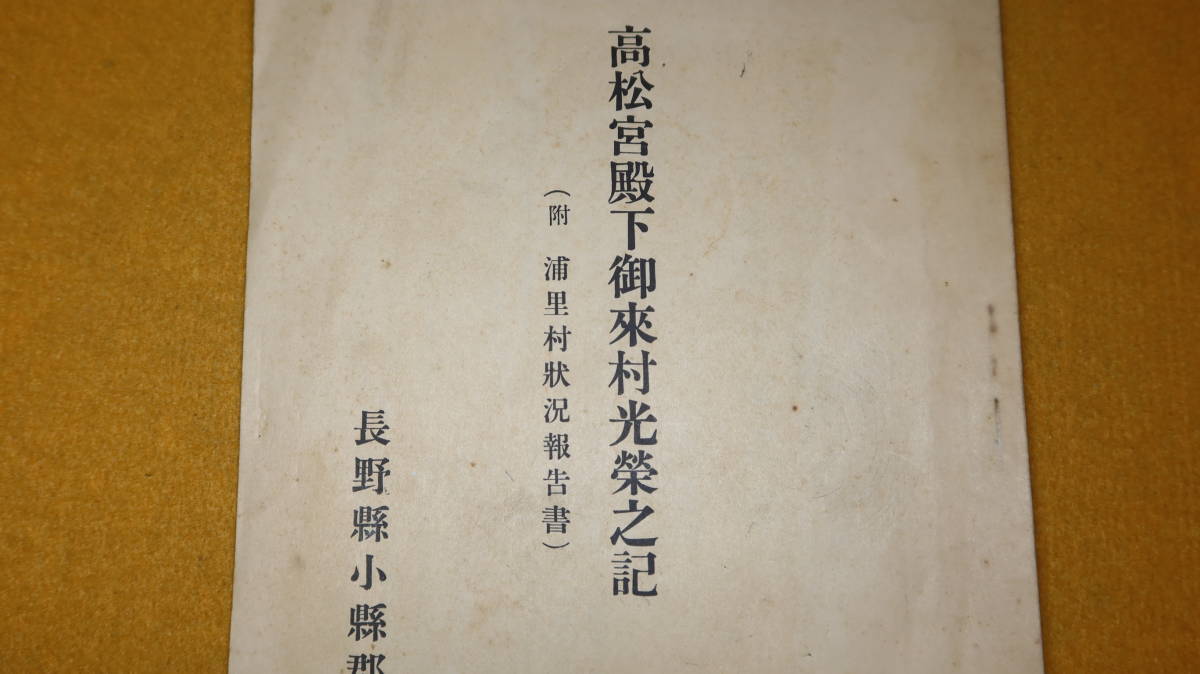 高松宮殿下御來村光榮之記
（附　浦里村狀況報告書）
長野縣小縣郡